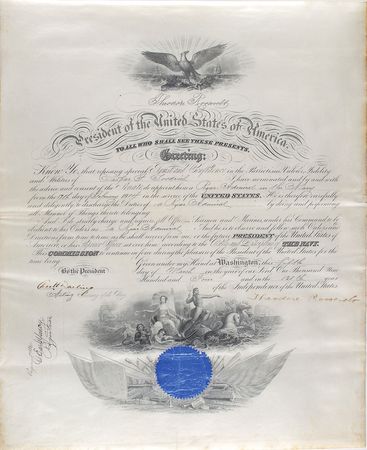 Theodore Roosevelt
President of the United States of America.
TO ALL WHO SHALL SEE THESE PRESENTS,
Greeting:
Know Ye, that reposing special Trust and Confidence in the Patriotism, Valor, Fidelity
and Abilities of I have nominated and, by and with
the advice and consent of the Senate, do appoint him a Rear Admiral in the Navy
from the of February in the service of the UNITED STATES. He is therefore carefully
and diligently to discharge the duties of Rear Admiral by doing and performing
all Manner of Things thereto belonging.
And I do strictly charge and require all Officers, Seamen and Marines under his Command to be
obedient to his Orders as Rear Admiral And he is to observe and follow such Orders and
Directions from time to time as he shall receive from me, or the future PRESIDENT of the United States of
America, or his Superior Officer set over him, according to the Rules and Discipline of THE NAVY.
This COMMISSION to continue in force during the pleasure of the President of the United States for the
time being.
Given under my Hand at Washington, this
By the President day of March in the year of our Lord One Thousand Nine
Hundred and Four and in the year
Acting Secretary of the Navy of the Independence of the United States
Theodore Roosevelt